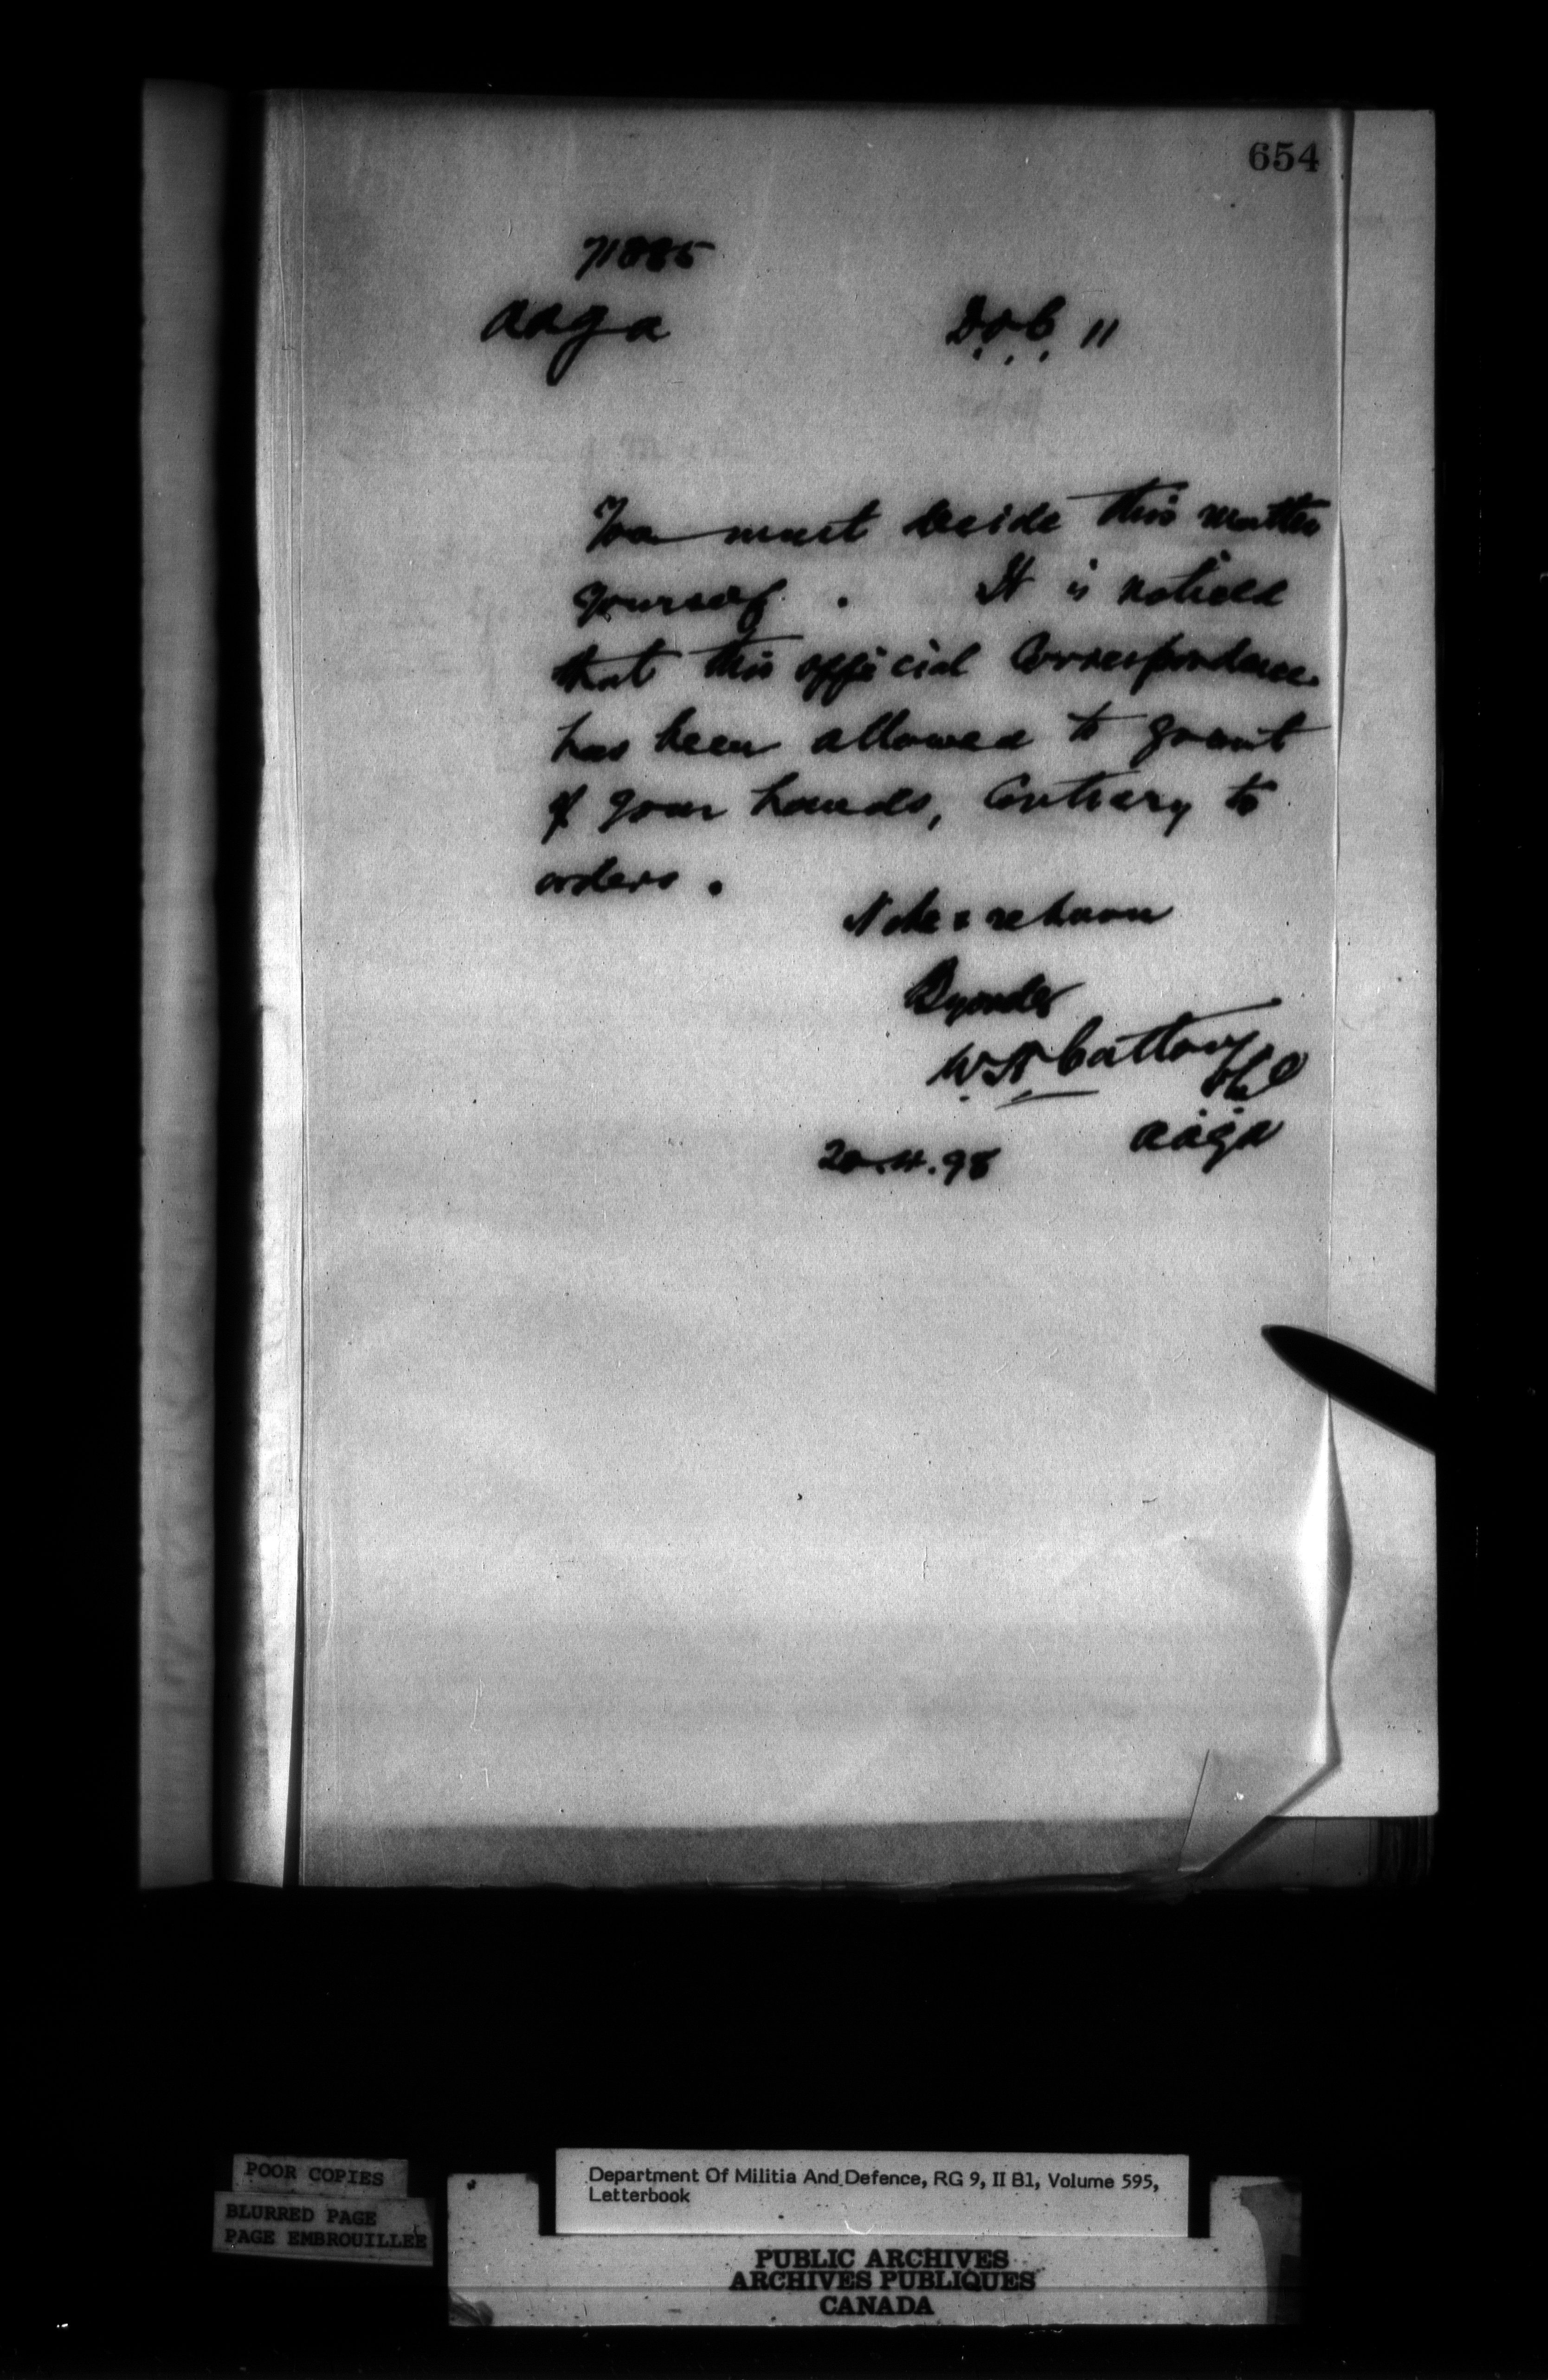 654
71885
aaga
D.O.C. 11
You must decide this matter
yourself. It is noticed
that this official Correspondence
has been allowed to go out
of your hands, Contrary to
orders.
Note & return
By order
20.4.98
aaga
POOR COPIES
BLURRED PAGE
PAGE EMBROUILLEE
Department Of Militia And Defence, RG 9, II B1, Volume 595,
Letterbook
PUBLIC ARCHIVES
ARCHIVES PUBLIQUES
CANADA